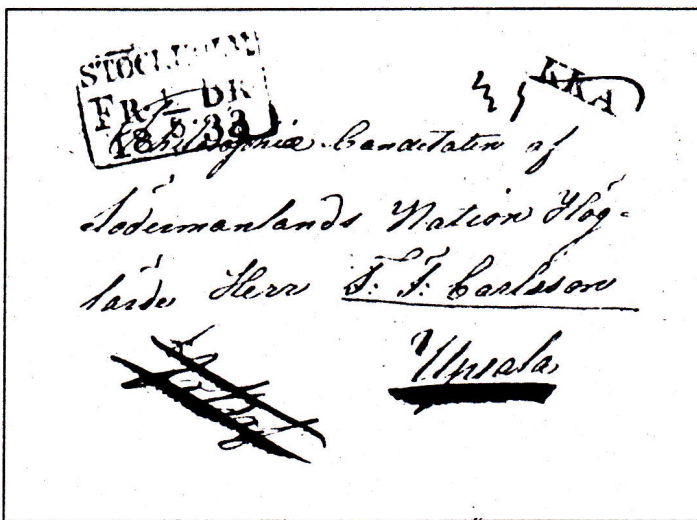 STOCKHOLM
FR. BR
1833
KKA
Philosophiæ Candidaten af
Södermanlands Nation Hög-
lärde Herr F. F. Carlsson
Upsala